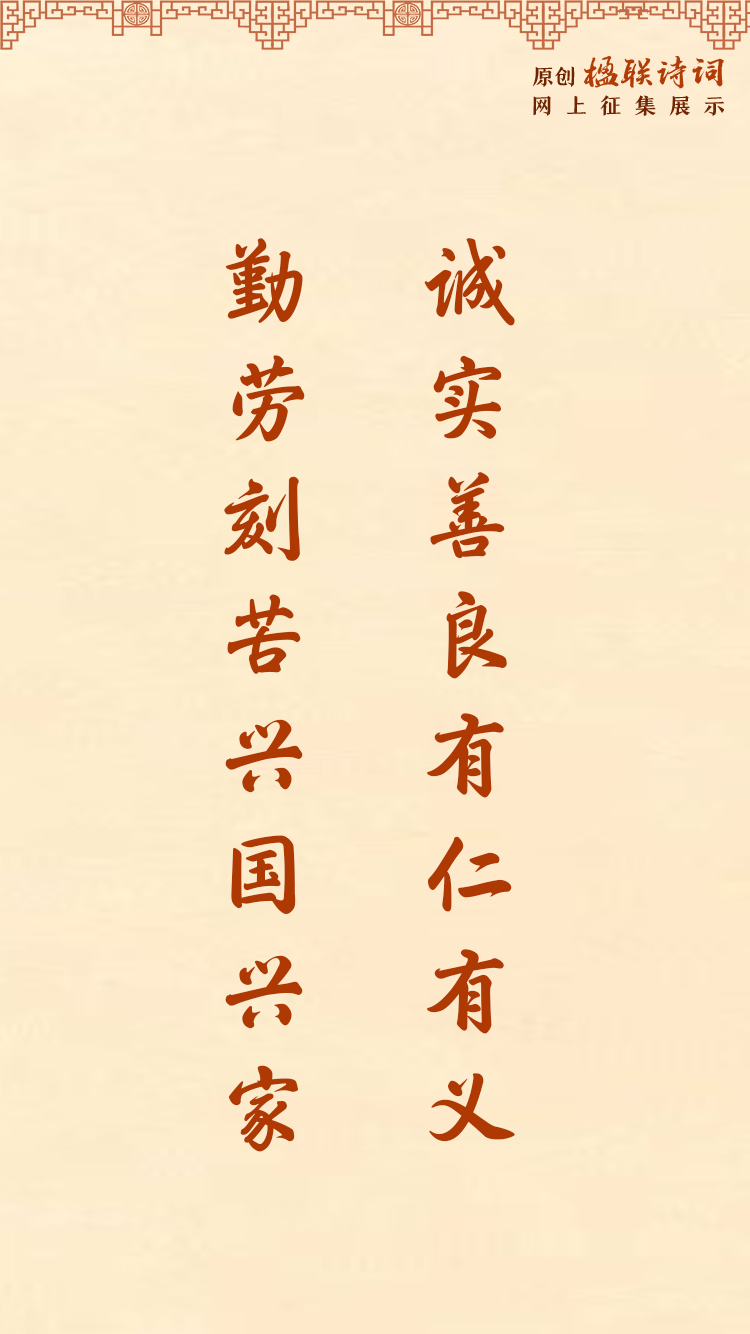 原创 楹联诗词
网上征集展示
诚实善良有仁有义
勤劳刻苦兴国兴家